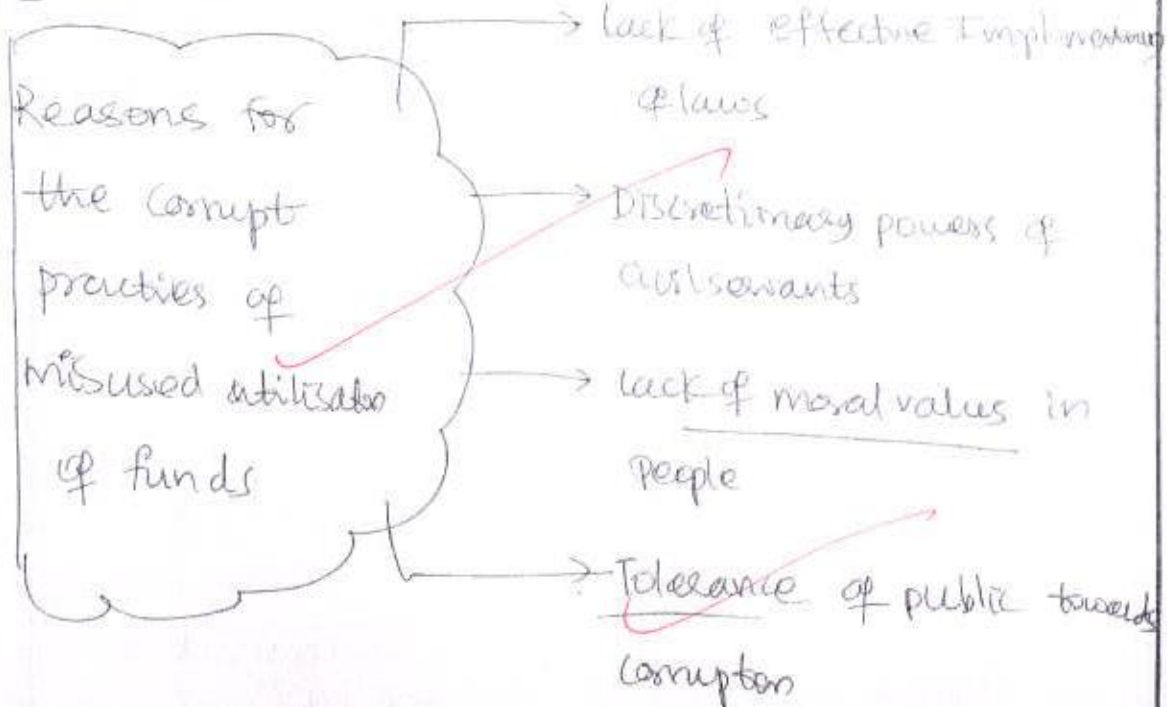 Reasons for
the Corrupt
practies of
misused utilisaton
of funds
lack of effective Implmentation
of laws
Discretimary powers of
Civilservants
lack of moral values in
people
Tolerance of public towards
corruption